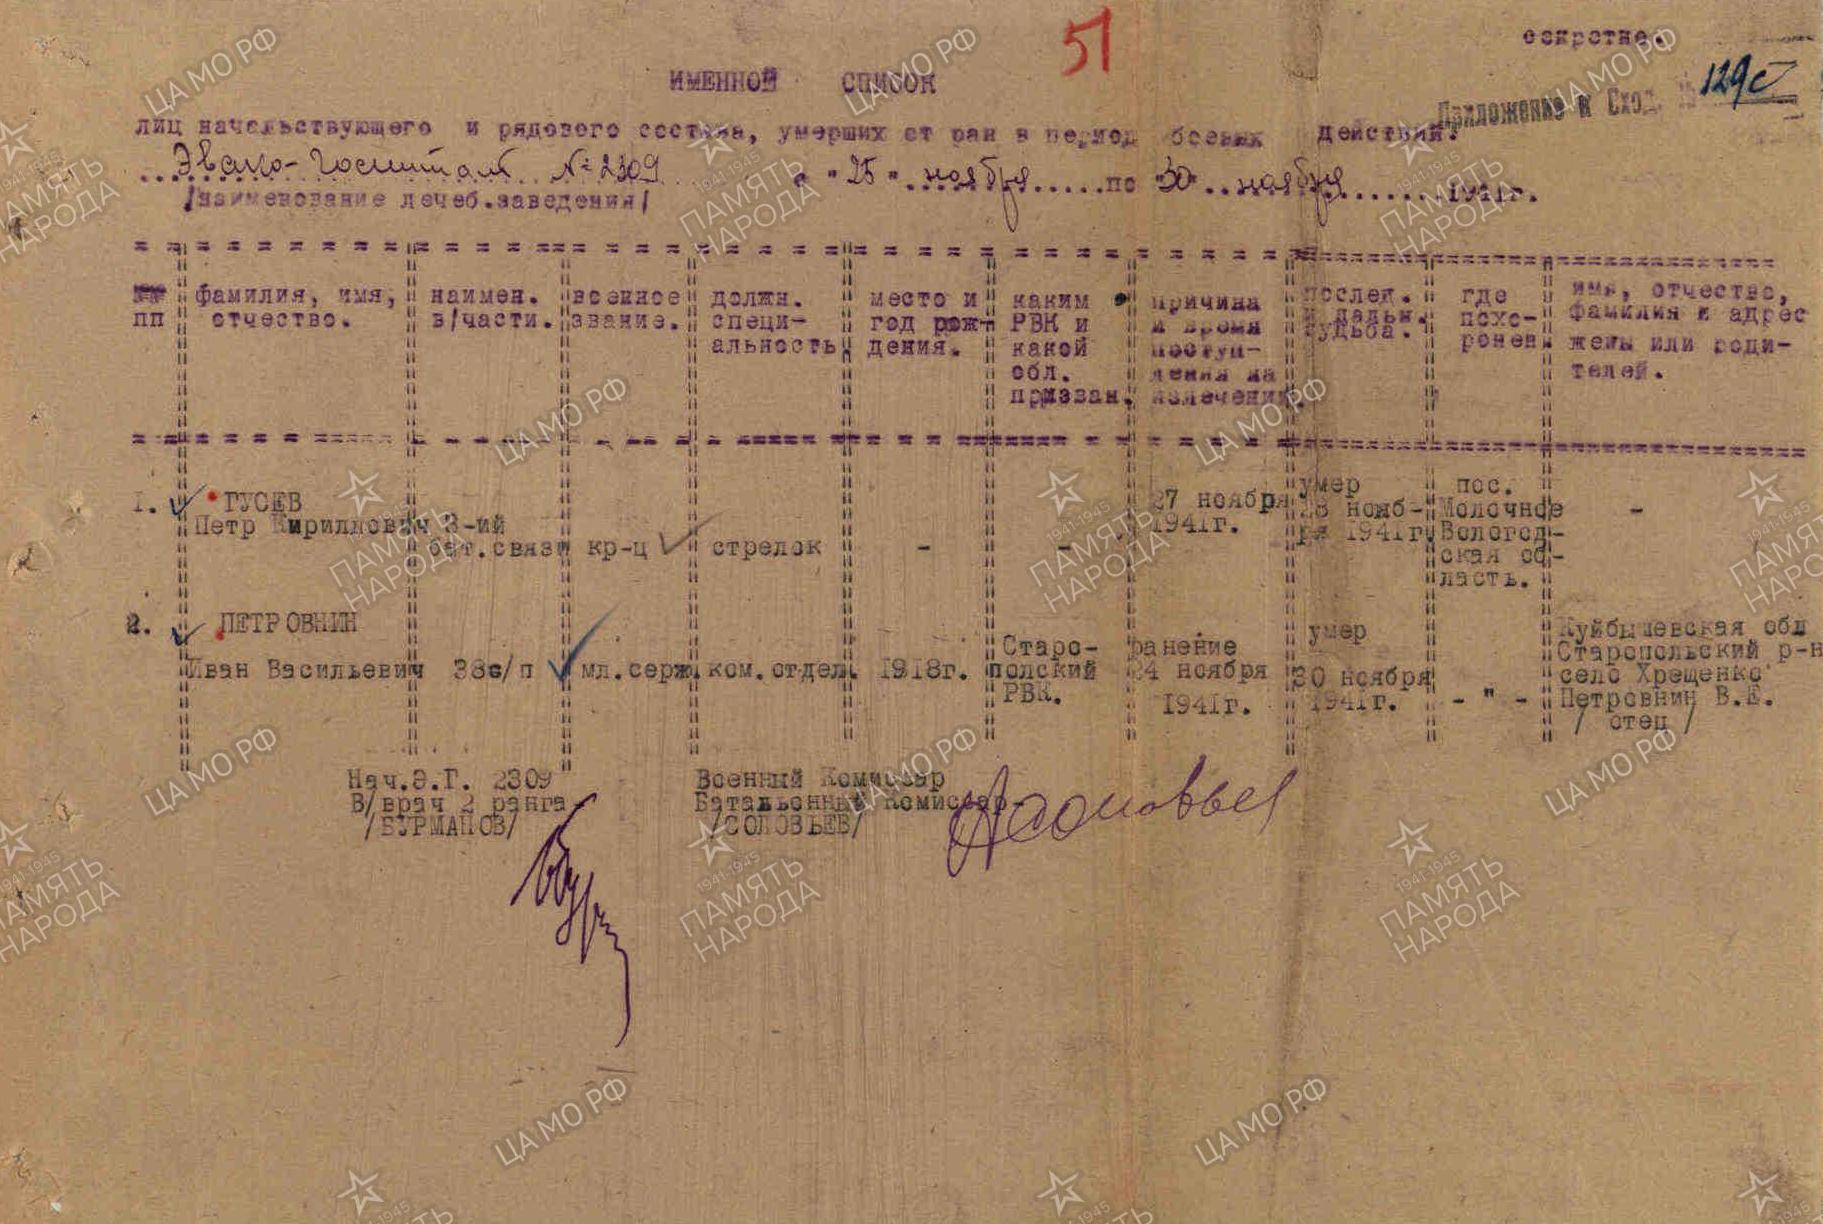 секретно.
51
129с
Приложение к Сход.
ИМЕННОЙ СПИСОК
лиц начальствующего и рядового состава, умерших от ран в период боевых действий.
Эвако-Госпиталь № 2309 с "25" ноября по "30" ноября 1941г.
/наименование лечеб.заведения/
пп
фамилия, имя, отчество.
наимен. в/части.
военное звание.
должн. специальность
место и год рождения.
каким РВК и какой обл. призван.
причина и время поступления на излечение.
послед. и дальн. судьба.
где похоронен.
имя, отчество, фамилия и адрес жены или родителей.
1. ГУСЕВ
Петр Кириллович 3-ий
бат.связи кр-ц стрелок - -
27 ноября
1941г.
умер
28 нояб-
ря 1941г.
пос.
Молочное
Вологод-
ская об-
ласть.
-
2. ПЕТРОВНИН
Иван Васильевич 38с/п мл.серж. ком.отдел. 1918г.
Старо-
польский
РВК.
ранение
24 ноября
1941г.
умер
30 ноября
1941г.
- " -
Куйбышевская обл
Старопольский р-н
село Хрещенко
Петровнин В.Е.
/ отец /
Нач.Э.Г. 2309
В/врач 2 ранга
/БУРМАНОВ/
Военный Комиссар
Батальонный Комиссар
/СОЛОВЬЕВ/
ЦАМО РФ
ПАМЯТЬ НАРОДА
1941-1945